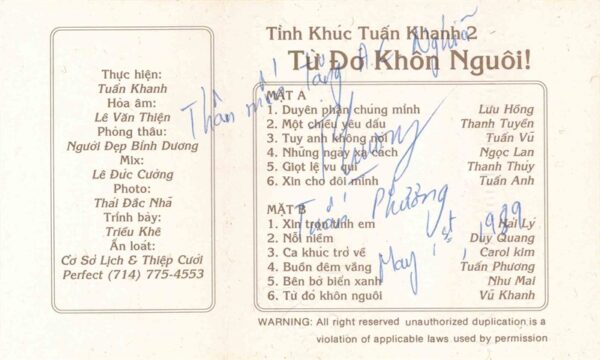 Thực hiện:
Tuấn Khanh
Hòa âm:
Lê Văn Thiện
Phòng thâu:
Người Đẹp Bình Dương
Mix:
Lê Đức Cường
Photo:
Thái Đắc Nhã
Trình bày:
Triều Khê
Ấn loát:
Cơ Sở Lịch & Thiệp Cưới
Perfect (714) 775-4553
Tình Khúc Tuấn Khanh 2
Từ Đó Khôn Nguôi!
MẶT A
1. Duyên phận chúng mình Lưu Hồng
2. Một chiều yêu dấu Thanh Tuyền
3. Tuy anh không nói Tuấn Vũ
4. Những ngày xa cách Ngọc Lan
5. Giọt lệ vu qui Thanh Thúy
6. Xin cho đôi mình Tuấn Anh
MẶT B
1. Xin trọn tình em Hải Lý
2. Nỗi niềm Duy Quang
3. Ca khúc trở về Carol kim
4. Buồn đêm vắng Tuấn Phương
5. Bên bờ biển xanh Như Mai
6. Từ đó khôn nguôi Vũ Khanh
WARNING: All right reserved unauthorized duplication is a
violation of applicable laws used by permission
Thân mến tặng A. Nghĩa
Thương
Tuấn Phương
May 1st, 1989